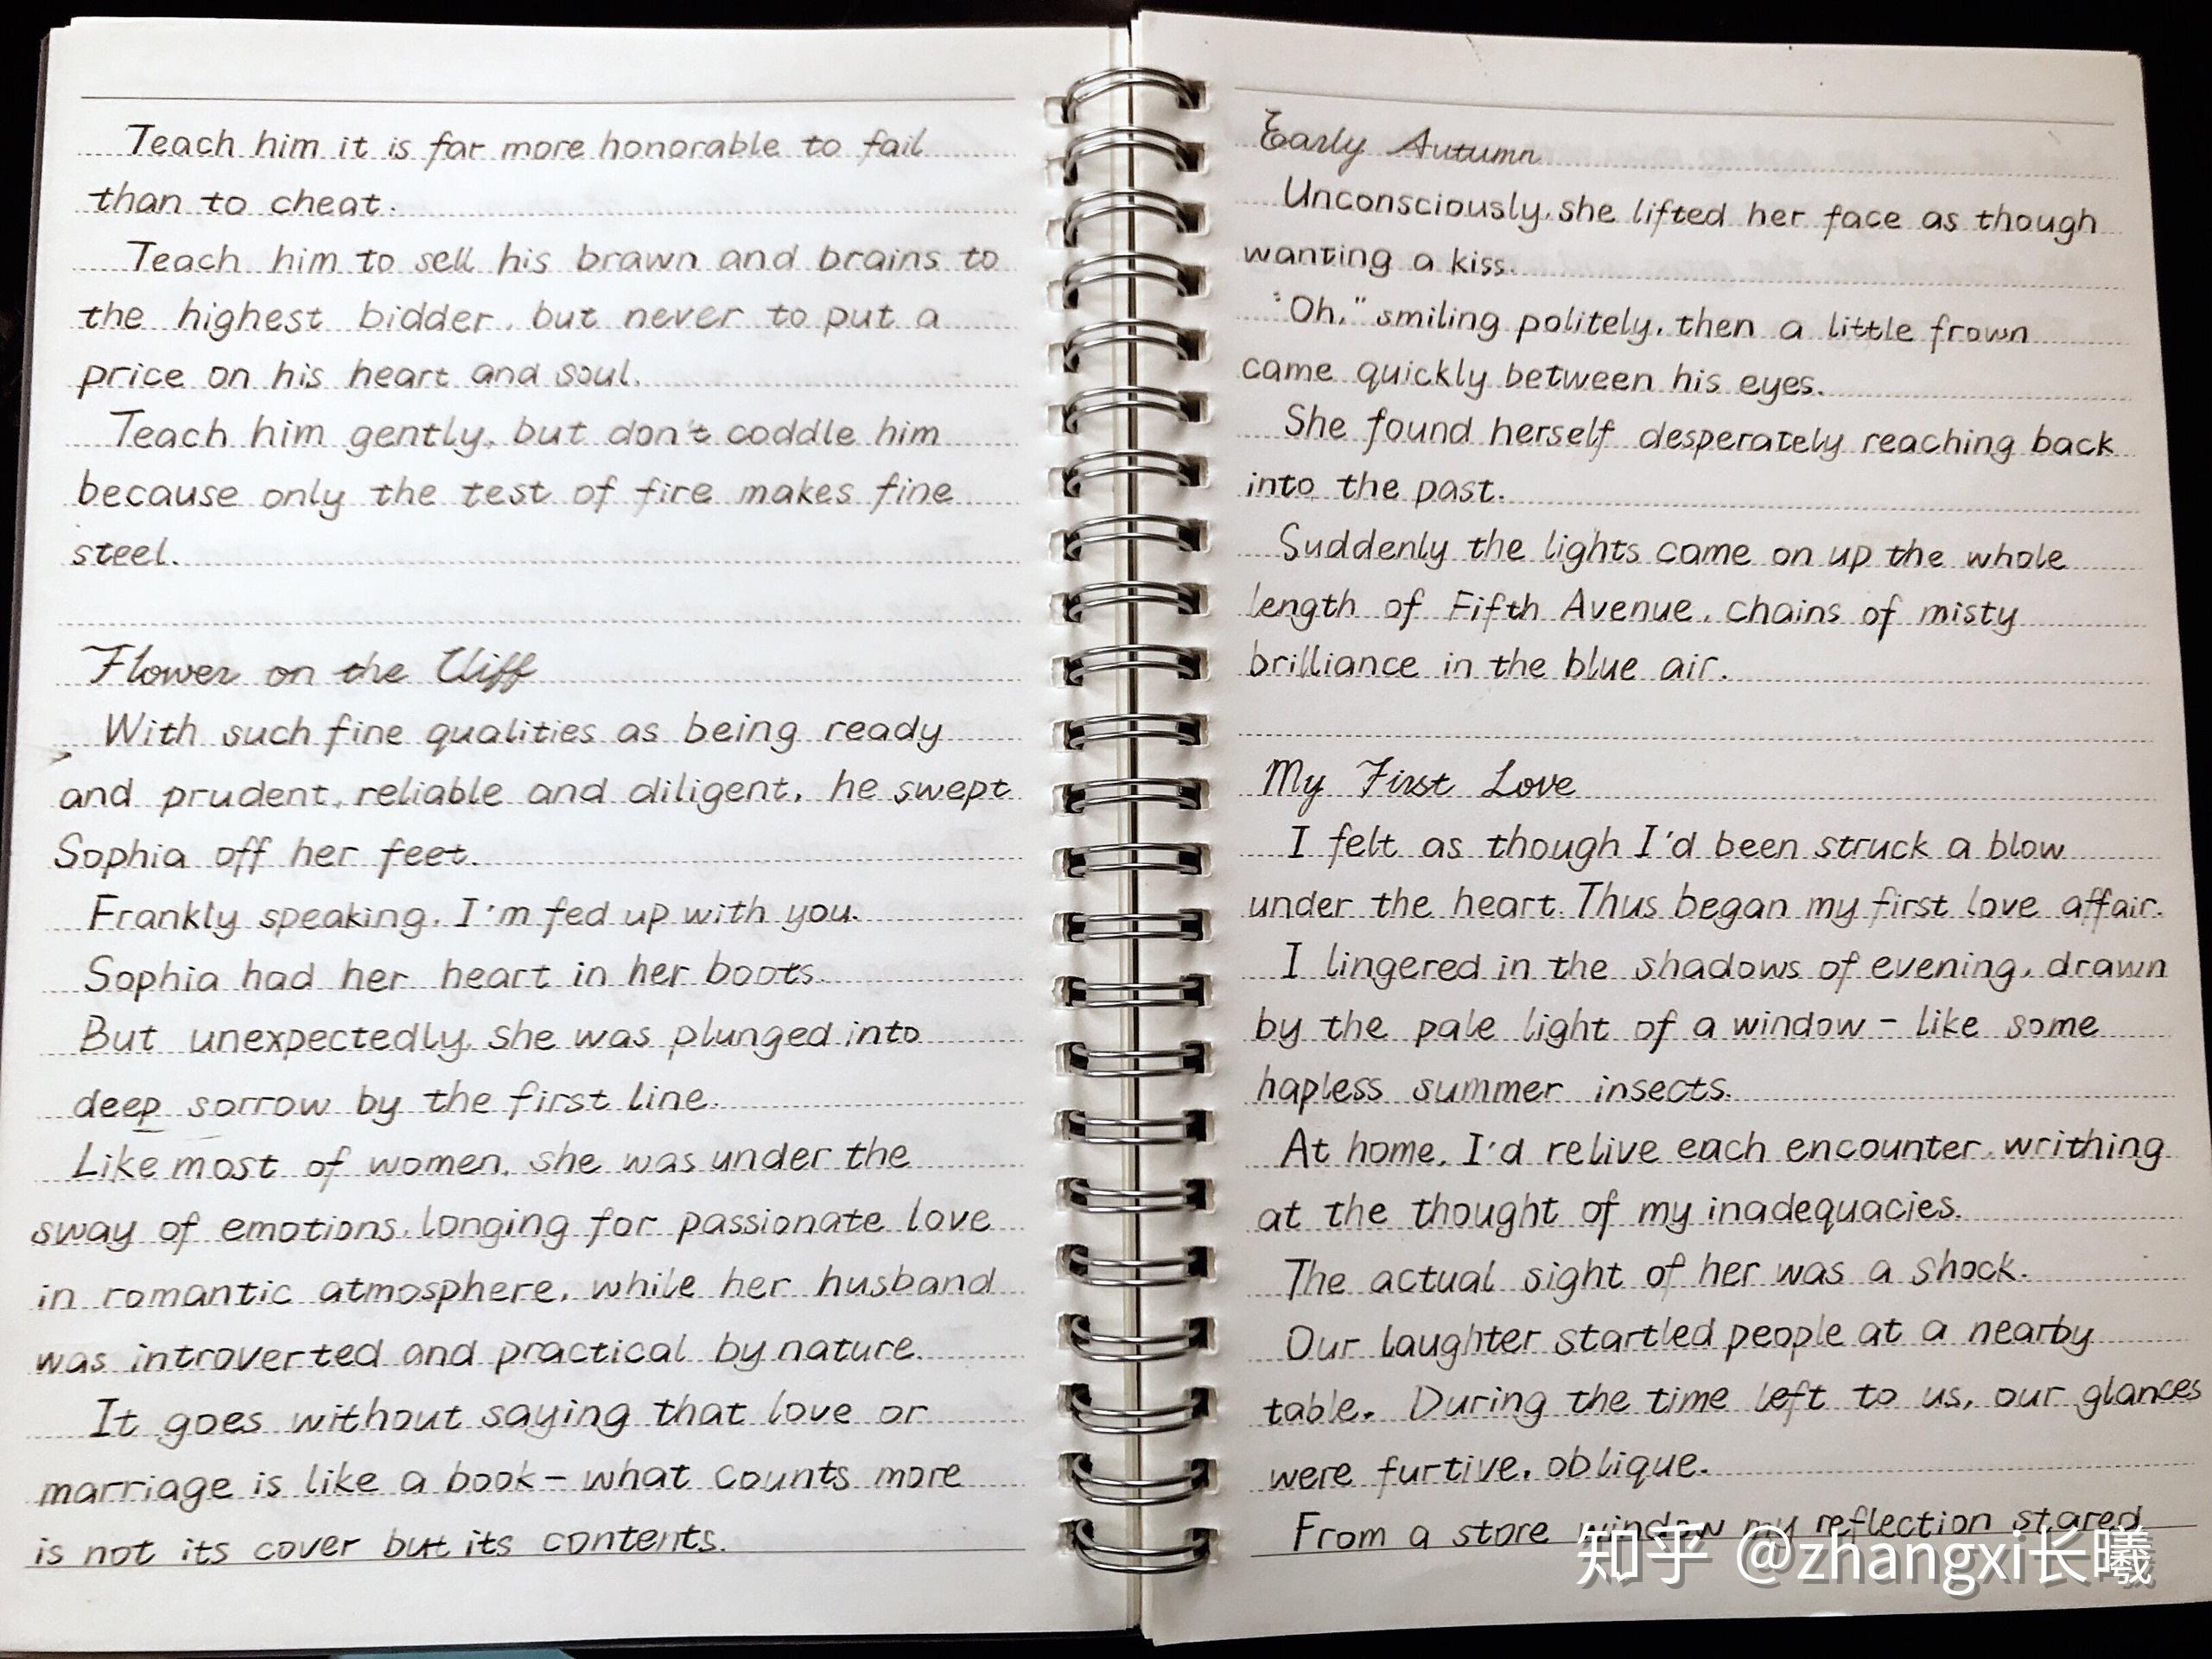 Teach him it is far more honorable to fail
than to cheat.
Teach him to sell his brawn and brains to
the highest bidder, but never to put a
price on his heart and soul.
Teach him gently, but don't coddle him
because only the test of fire makes fine
steel.
Flower on the Cliff
With such fine qualities as being ready
and prudent, reliable and diligent, he swept
Sophia off her feet.
Frankly speaking, I'm fed up with you.
Sophia had her heart in her boots.
But unexpectedly, she was plunged into
deep sorrow by the first line.
Like most of women, she was under the
sway of emotions, longing for passionate love
in romantic atmosphere, while her husband
was introverted and practical by nature.
It goes without saying that love or
marriage is like a book - what counts more
is not its cover but its contents.
Early Autumn
Unconsciously, she lifted her face as though
wanting a kiss.
"Oh," smiling politely, then a little frown
came quickly between his eyes.
She found herself desperately reaching back
into the past.
Suddenly the lights came on up the whole
length of Fifth Avenue, chains of misty
brilliance in the blue air.
My First Love
I felt as though I'd been struck a blow
under the heart. Thus began my first love affair.
I lingered in the shadows of evening, drawn
by the pale light of a window - like some
hapless summer insects.
At home, I'd relive each encounter, writhing
at the thought of my inadequacies.
The actual sight of her was a shock.
Our laughter startled people at a nearby
table. During the time left to us, our glances
were furtive, oblique.
From a store window my reflection stared
知乎 @zhangxi长曦